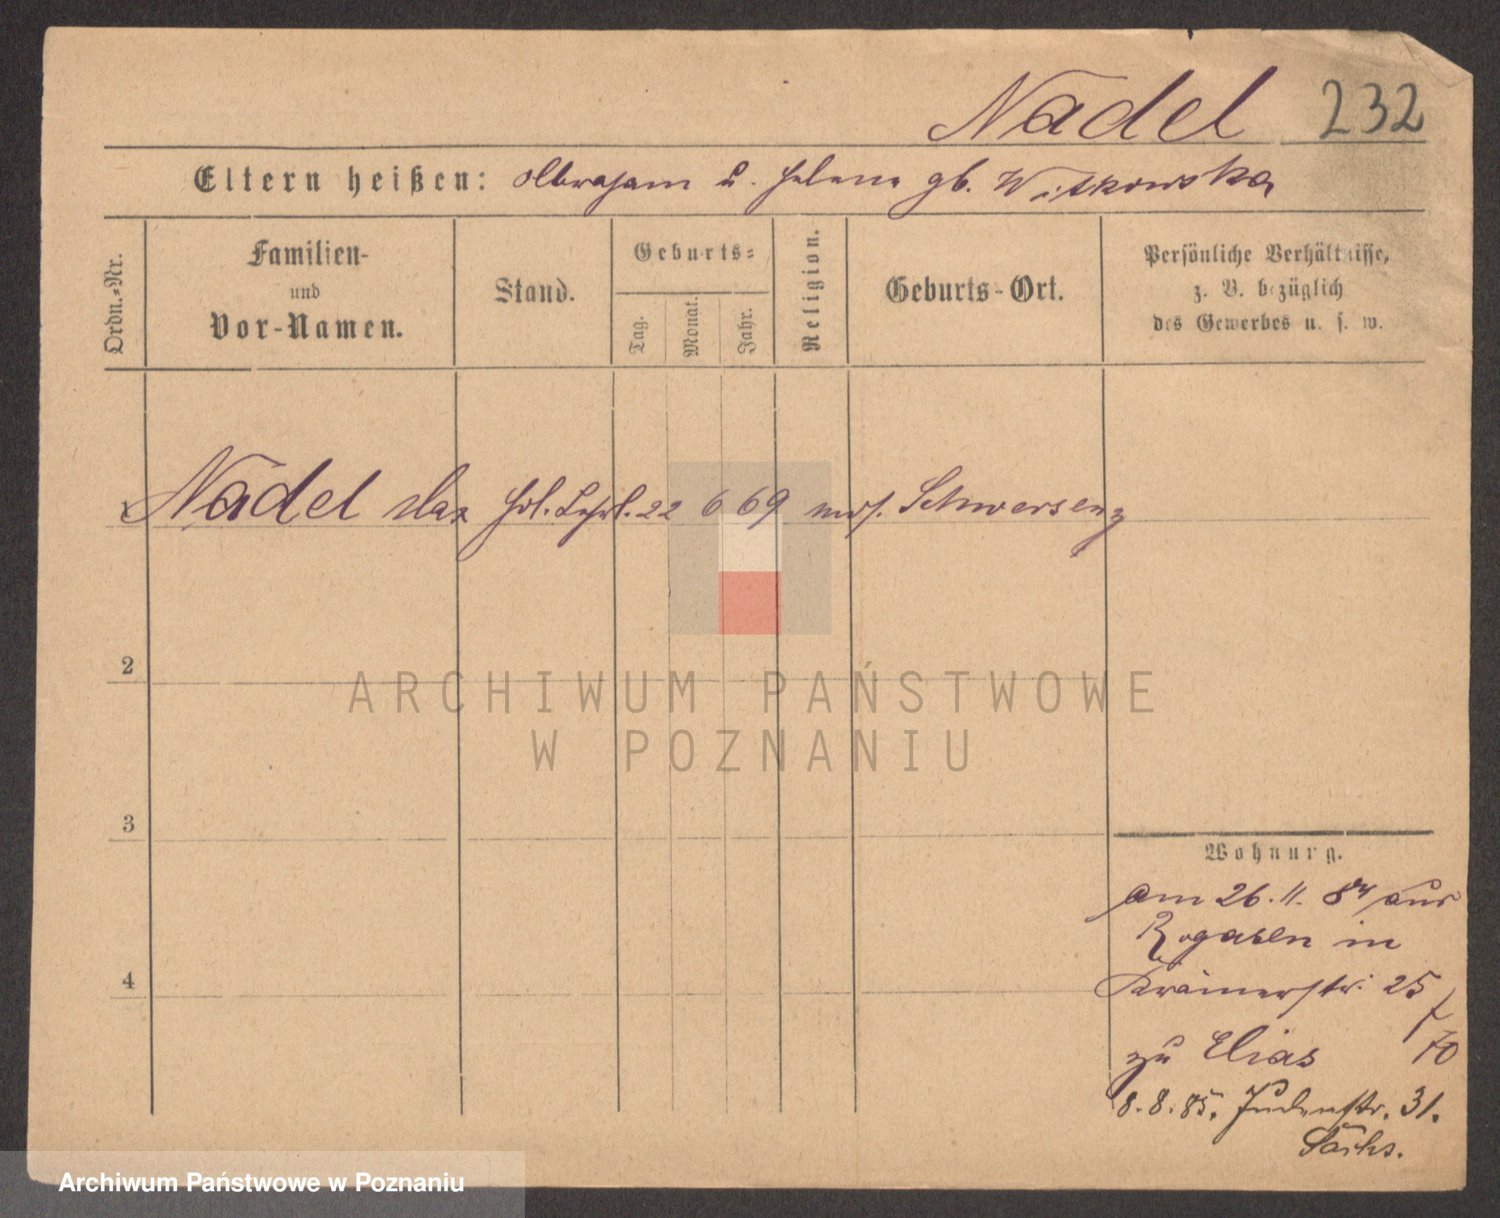 Nadel 232
Eltern heißen: Abraham u. Helene gb. Witkowska
Ordn.-Nr.
Familien-
und
Vor-Namen.
Stand.
Geburts-
Tag.
Monat.
Jahr.
Religion.
Geburts-Ort.
Persönliche Verhältnisse,
z. B. bezüglich
des Gewerbes u. s. w.
1 Nadel Max Hdl. Lehrl. 22 6 69 mos. Schwersenz
2
ARCHIWUM PAŃSTWOWE
W POZNANIU
3
4
Wohnung.
am 26. 11. 84 aus
Rogasen in
Krämerstr. 25
zu Elias 70
8. 8. 85. Judenstr. 31.
Sachs.
Archiwum Państwowe w Poznaniu